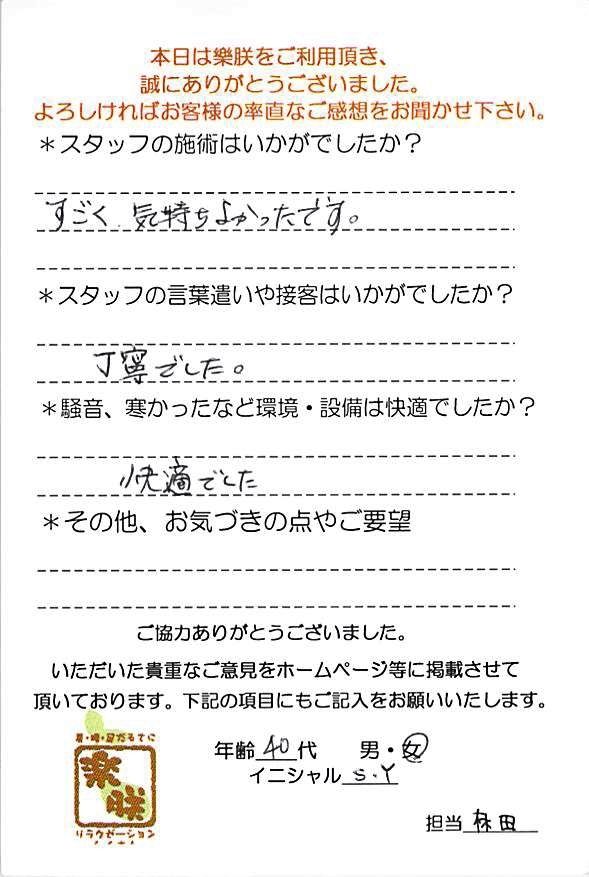 本日は樂朕をご利用頂き、
誠にありがとうございました。
よろしければお客様の率直なご感想をお聞かせ下さい。
＊スタッフの施術はいかがでしたか？
すごく、気持ちよかったです。
＊スタッフの言葉遣いや接客はいかがでしたか？
丁寧でした。
＊騒音、寒かったなど環境・設備は快適でしたか？
快適でした
＊その他、お気づきの点やご要望
ご協力ありがとうございました。
いただいた貴重なご意見をホームページ等に掲載させて
頂いております。下記の項目にもご記入をお願いいたします。
年齢 40 代　男・女
イニシャル S.Y
樂朕
リラクゼーション
担当 林田